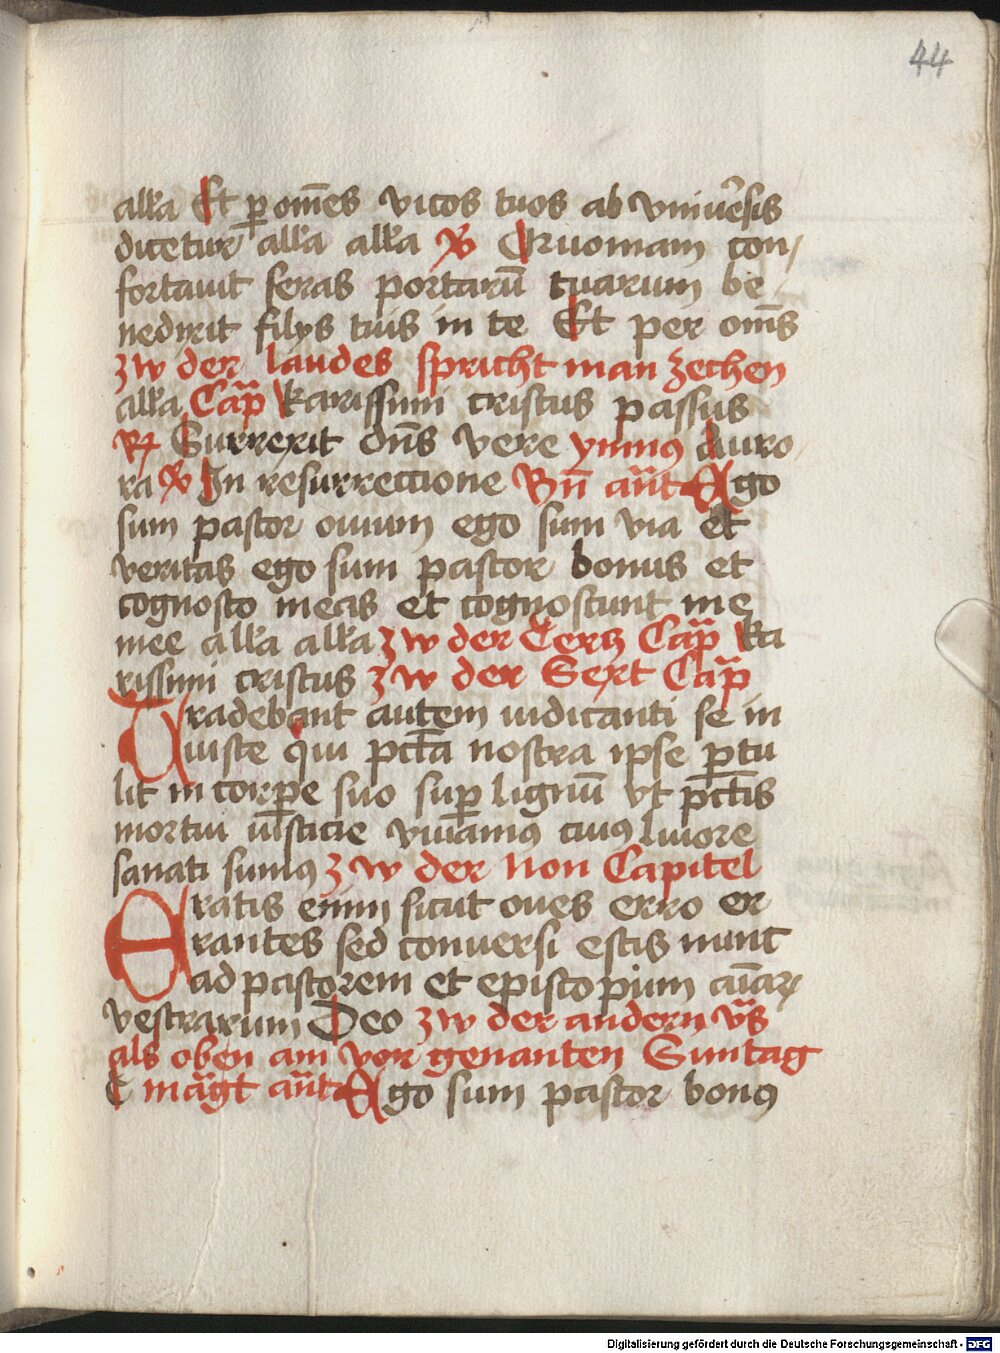 44
alła Et ꝑ om̄es vicos tuos ab vniũersis
dicetur alła alła ℣ Quoniam con/
fortauit seras portarū tuarum be
nedixit filys tuis in te Et per om̄s
zw der laudes spricht man zechen
alła Cap̄ karissimi cristus passus
℟ Surrexit dn̄s vere ymnꝰ Auro
ra ℣ In resurreccione Bn̄ an̄t Ego
sum pastor ouium ego sum via et
veritas ego sum pastor bonus et
cognosco meas et cognoscunt me
mee alła alła zw der Tercz Cap̄ ka
rissimi cristus zw der Sext Cap̄
Tradebant autem iudicanti se in
iuste qui pctā nostra ipse ꝑtu
lit in corꝑe suo suꝑ lignū vt pctīs
mortui iusticie viuamꝰ cuiꝰ liuore
sanati sumꝰ zw der Non Capitel
Eratis enim sicut oues erro er
rantes sed conuersi estis nunc
ad pastorem et episcopium aīaꝝ
vestrarum Deo zw der andern v̄s
als oben am vor genanten Suntag
C mãgt an̄t Ego sum pastor bonꝰ
Digitalisierung gefördert durch die Deutsche Forschungsgemeinschaft - DFG